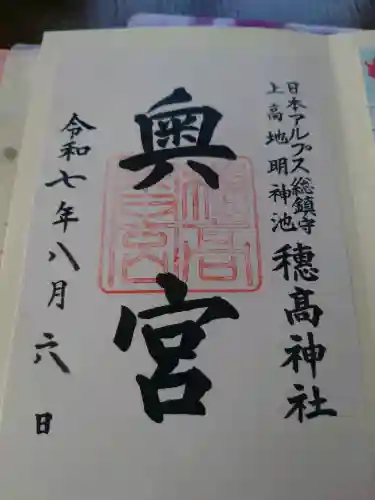 日本アルプス総鎮守
上高地明神池
穂髙神社
奥宮
令和七年八月六日